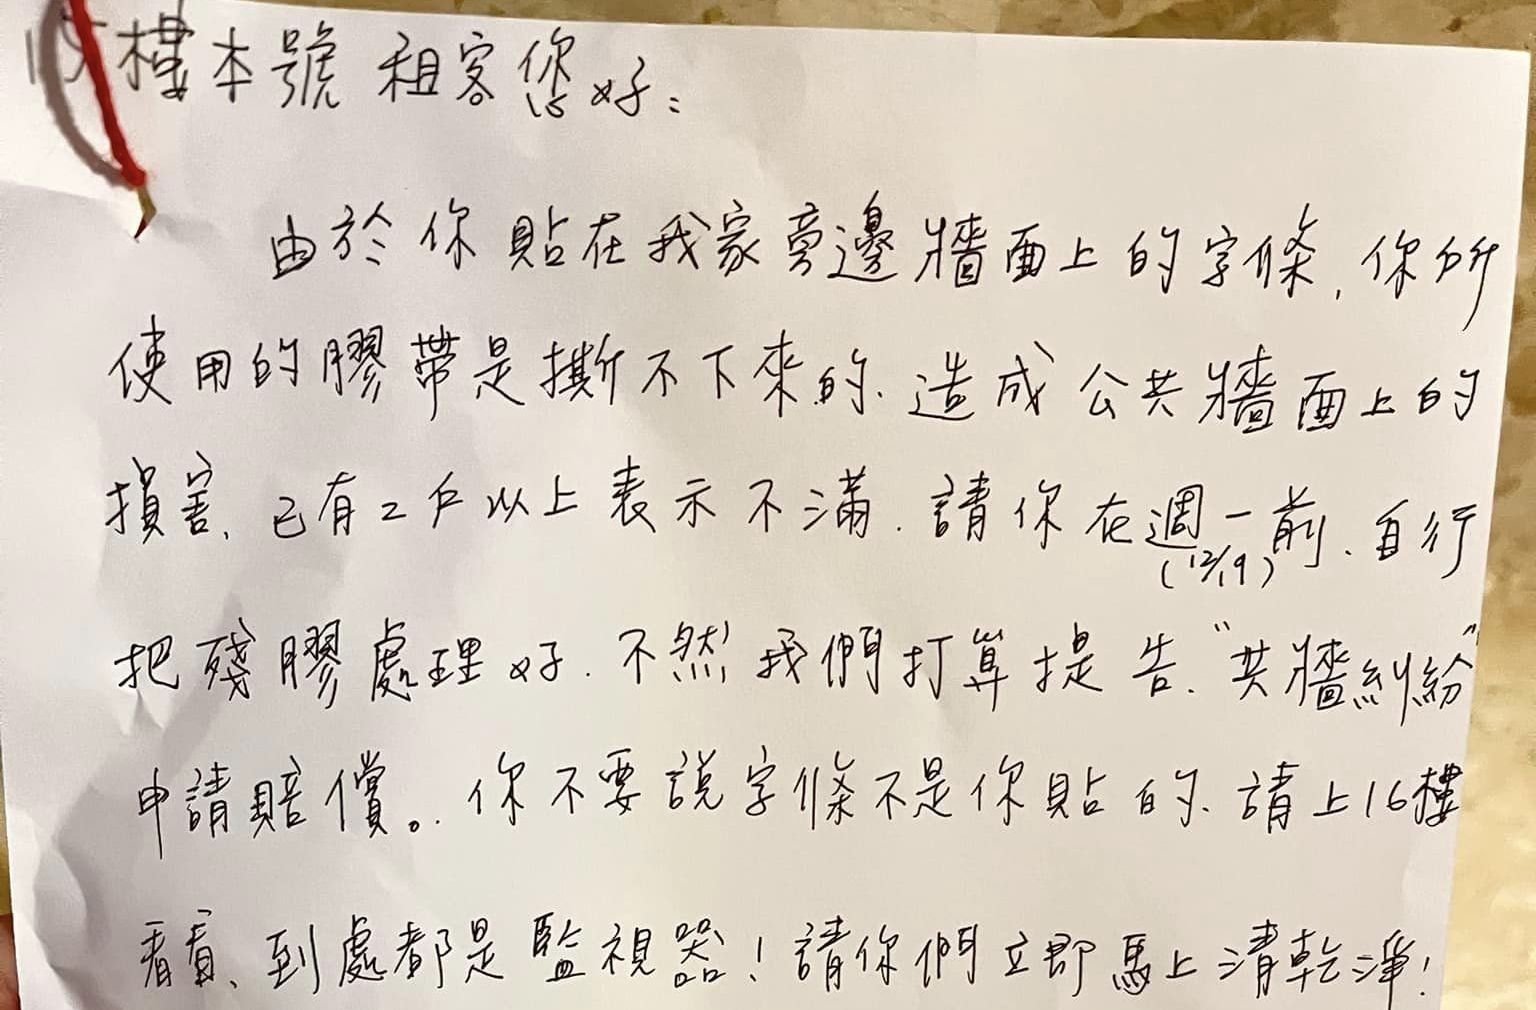 樓本號 租客您好:
由於你貼在我家旁邊牆面上的字條, 你所
使用的膠帶是撕不下來的. 造成公共牆面上的
損害, 已有2戶以上表示不滿. 請你在週一前. 自行
(12/19)
把殘膠處理好. 不然我們打算提告. "共牆糾紛"
申請賠償。. 你不要說字條不是你貼的. 請上16樓
看看, 到處都是監視器! 請你們立即馬上清乾淨!